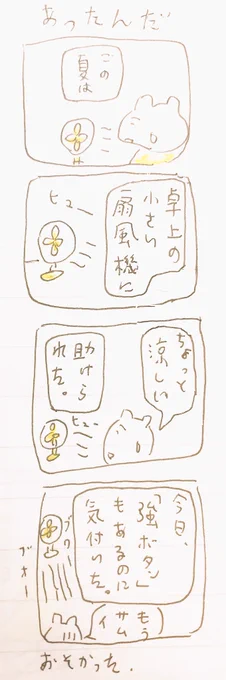 あったんだ
この
夏は
卓上の
小さい
扇風機に
ヒュー
ちょっと
涼しい
助けら
れた。
ヒュー
今日、
「強ボタン」
もあるのに
気付いた。
ブワー
ブオー
もう
サム
イ
おそかった.